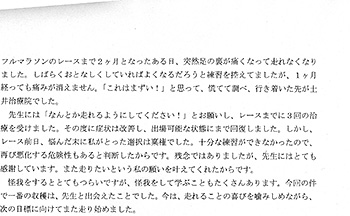 フルマラソンのレースまで２ヶ月となったある日、突然足の裏が痛くなって走れなくなり
ました。しばらくおとなしくしていればよくなるだろうと練習を控えてましたが、１ヶ月
経っても痛みが消えません。「これはまずい！」と思って、慌てて調べ、行き着いた先が土
井治療院でした。
先生には「なんとか走れるようにしてください！」とお願いし、レースまでに３回の治
療を受けました。その度に症状は改善し、出場可能な状態にまで回復しました。しかし、
レース前日、悩んだ末に私がとった選択は棄権でした。十分な練習ができなかったので、
再び悪化する危険性もあると判断したからです。残念ではありましたが、先生にはとても
感謝しています。また走りたいという私の願いを叶えてくれたからです。
怪我をするととてもつらいですが、怪我をして学ぶこともたくさんあります。今回の件
で一番の収穫は、先生と出会えたことでした。今は、走れることの喜びを噛みしめながら、
次の目標に向けてまた走り始めました。